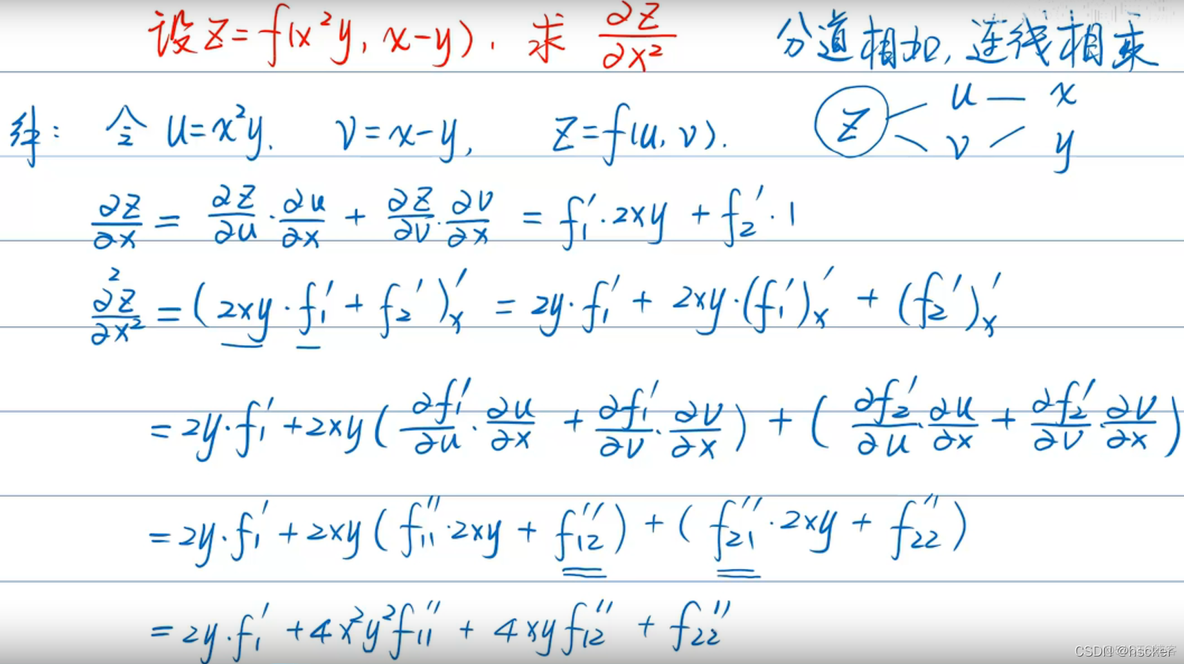 设Z=f(x²y, x-y). 求 ∂Z/∂x²
分道相加, 连线相乘
解: 令 u=x²y. v=x-y, Z=f(u,v).
Z u — x
v y
∂Z/∂x = ∂Z/∂u · ∂u/∂x + ∂Z/∂v · ∂v/∂x = f₁'·2xy + f₂'·1
∂²Z/∂x² = (2xy·f₁' + f₂')'ₓ = 2y·f₁' + 2xy·(f₁')'ₓ + (f₂')'ₓ
= 2y·f₁' + 2xy(∂f₁'/∂u · ∂u/∂x + ∂f₁'/∂v · ∂v/∂x) + (∂f₂'/∂u · ∂u/∂x + ∂f₂'/∂v · ∂v/∂x)
= 2y·f₁' + 2xy(f₁₁''·2xy + f₁₂'') + (f₂₁''·2xy + f₂₂'')
= 2y·f₁' + 4x²y²f₁₁'' + 4xyf₁₂'' + f₂₂''
CSDN @hscker